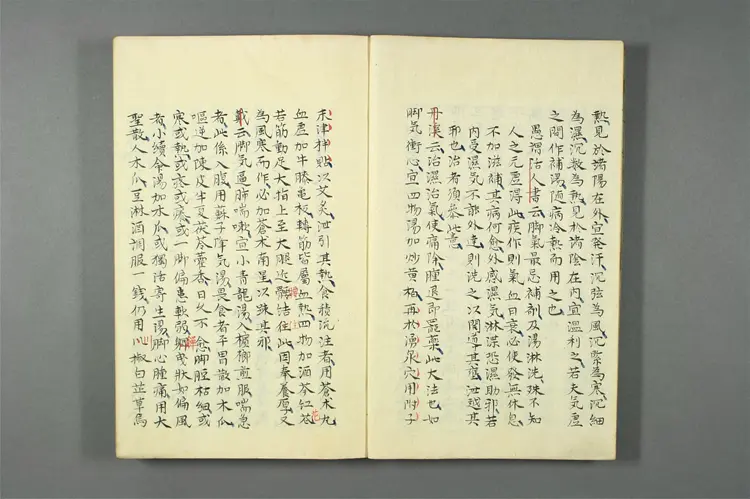 熱見於諸陽在外宣發汗沉弦為風沉緊為寒沉細
為濕沉數為熱見於諸陰在内宣溫利之若夫氣虛
之閒作補湯随病冷熱而用之也
愚謂活人書云脚氣最忌補劑及湯淋洗殊不知
人之元虛得此疾作則氣血日衰必使發無休息
不加滋補其病何愈外感濕気淋渫恐濕助邪若
内受濕気不能外達則洗之以開導其泄越其
邪也治者須參此意
丹溪云治濕治氣使痛除腫退即罷藥此大法也如
脚気衝心宣四物湯加炒黄栢再於湧泉穴用附子
末津拌貼以艾炙泄引其熱食積流注者用蒼朮丸
血虛加牛膝龜板轉筋皆屬血熱四物加酒芩红花
若筋動足大指上至大腿近腰結住此因奉養厚又
為風寒而作必加蒼朮南星以踈其邪
戴云脚氣逼肺喘嗽宣小青龍湯入檳榔煎服喘急
者此係入腹用蘇子降気湯畏食者平胃散加木瓜
嘔逆加陳皮半夏茯苓藿香日久不愈脚脛枯細或
寒或熱或疼或痿或一脚偏患軟弱軃曳狀如偏風
者小續命湯加木瓜或獨活寄生湯脚心腫痛用大
聖散入木瓜豆淋酒調服一錢仍用川椒白芷草烏